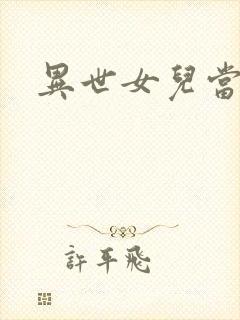 異世女兒當
許平飛